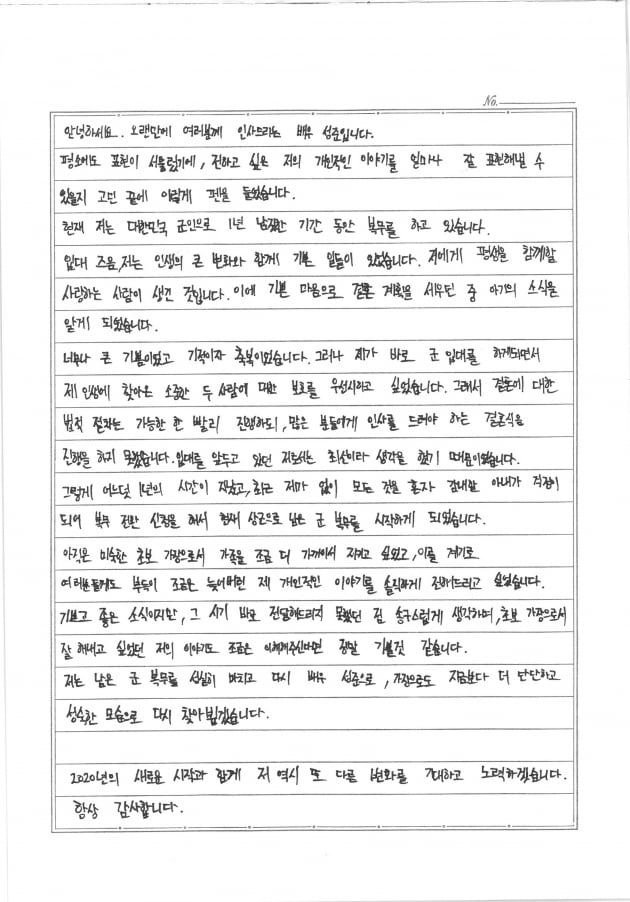 No.
안녕하세요. 오랜만에 여러분께 인사드리는 배우 성준입니다.
평소에도 표현이 서툴렀기에, 전하고 싶은 저의 개인적인 이야기를 얼마나 잘 표현해낼 수
있을지 고민 끝에 이렇게 펜을 들었습니다.
현재 저는 대한민국 군인으로 1년 남짓한 기간 동안 복무를 하고 있습니다.
입대 즈음, 저는 인생의 큰 변화와 함께 기쁜 일들이 있었습니다. 저에게 평생을 함께할
사랑하는 사람이 생긴 것입니다. 이에 기쁜 마음으로 결혼 계획을 세우던 중 아기의 소식을
알게 되었습니다.
너무나 큰 기쁨이었고 기적이자 축복이었습니다. 그러나 제가 바로 군 입대를 하게되면서
제 인생에 찾아온 소중한 두 사람에 대한 보호를 우선시하고 싶었습니다. 그래서 결혼에 대한
법적 절차는 가능한 한 빨리 진행하되, 많은 분들에게 인사를 드려야 하는 결혼식을
진행을 하지 못했습니다. 입대를 앞두고 있던 저로서는 최선이라 생각을 했기 때문이었습니다.
그렇게 어느덧 1년의 시간이 지났고, 최근 저마 없이 모든 것을 혼자 감내할 아내가 걱정이
되어 복무 전환 신청을 해서 현재 상근으로 남은 군 복무를 시작하게 되었습니다.
아직은 미숙한 초보 가장으로서 가족을 조금 더 가까이서 지키고 싶었고, 이를 계기로
여러분들께도 부득이 조금은 늦어버린 제 개인적인 이야기를 솔직하게 전해드리고 싶었습니다.
기쁘고 좋은 소식이지만, 그 시기 바로 전달해드리지 못했던 점 송구스럽게 생각하며, 초보 가장으로서
잘 해내고 싶었던 저의 이야기도 조금은 이해해주신다면 정말 기쁠것 같습니다.
저는 남은 군 복무를 성실히 마치고 다시 배우 성준으로, 가장으로도 지금보다 더 단단하고
성숙한 모습으로 다시 찾아뵙겠습니다.
2020년의 새로운 시작과 함께 저 역시 또 다른 변화를 기대하고 노력하겠습니다.
항상 감사합니다.